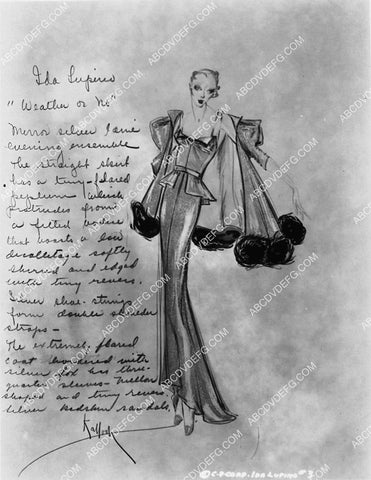 Ida Lupino
"Weather or No"
Mirror silver lamé
evening ensemble
The straight skirt
has a tiny flared
peplum which
protrudes from
a fitted bodice
that boasts a low
decolletage softly
shirred and edged
with tiny revers.
Silver shoe-strings
form double shoulder
straps -
The extremely flared
coat bordered with
silver fox has three-
quarter sleeves -
shaped and tiny revers.
Silver kidskin sandals
Kalloch
© C.P. CORP. - IDA LUPINO #3
ABCDVDEFG.COM